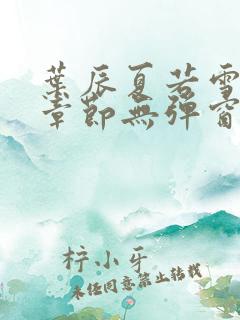 葉辰夏若雪
章節無彈窗
柠小牙
未经同意禁止转载